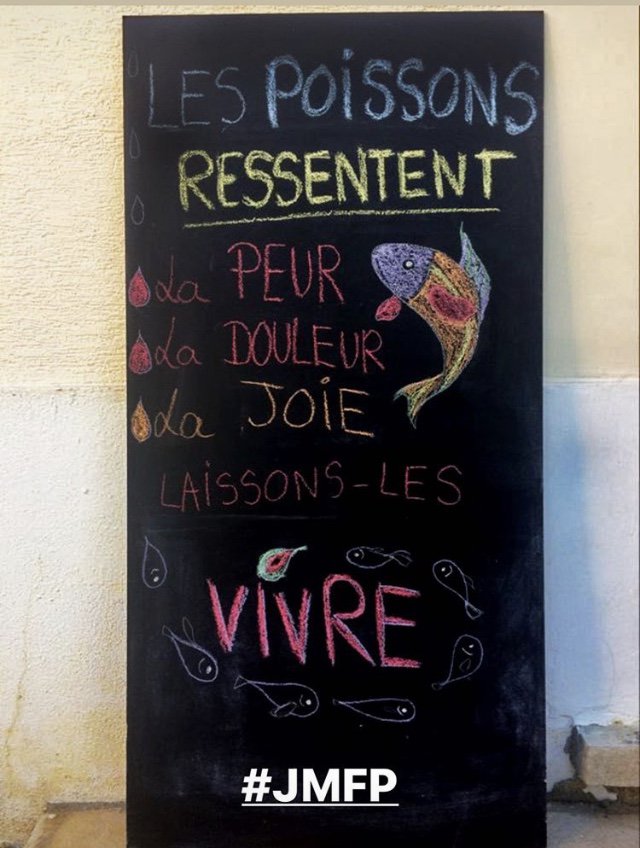 LES POiSSONS
RESSENTENT
La PEUR
La DOULEUR
La JOiE
LAiSSONS-LES
ViVRE
#JMFP